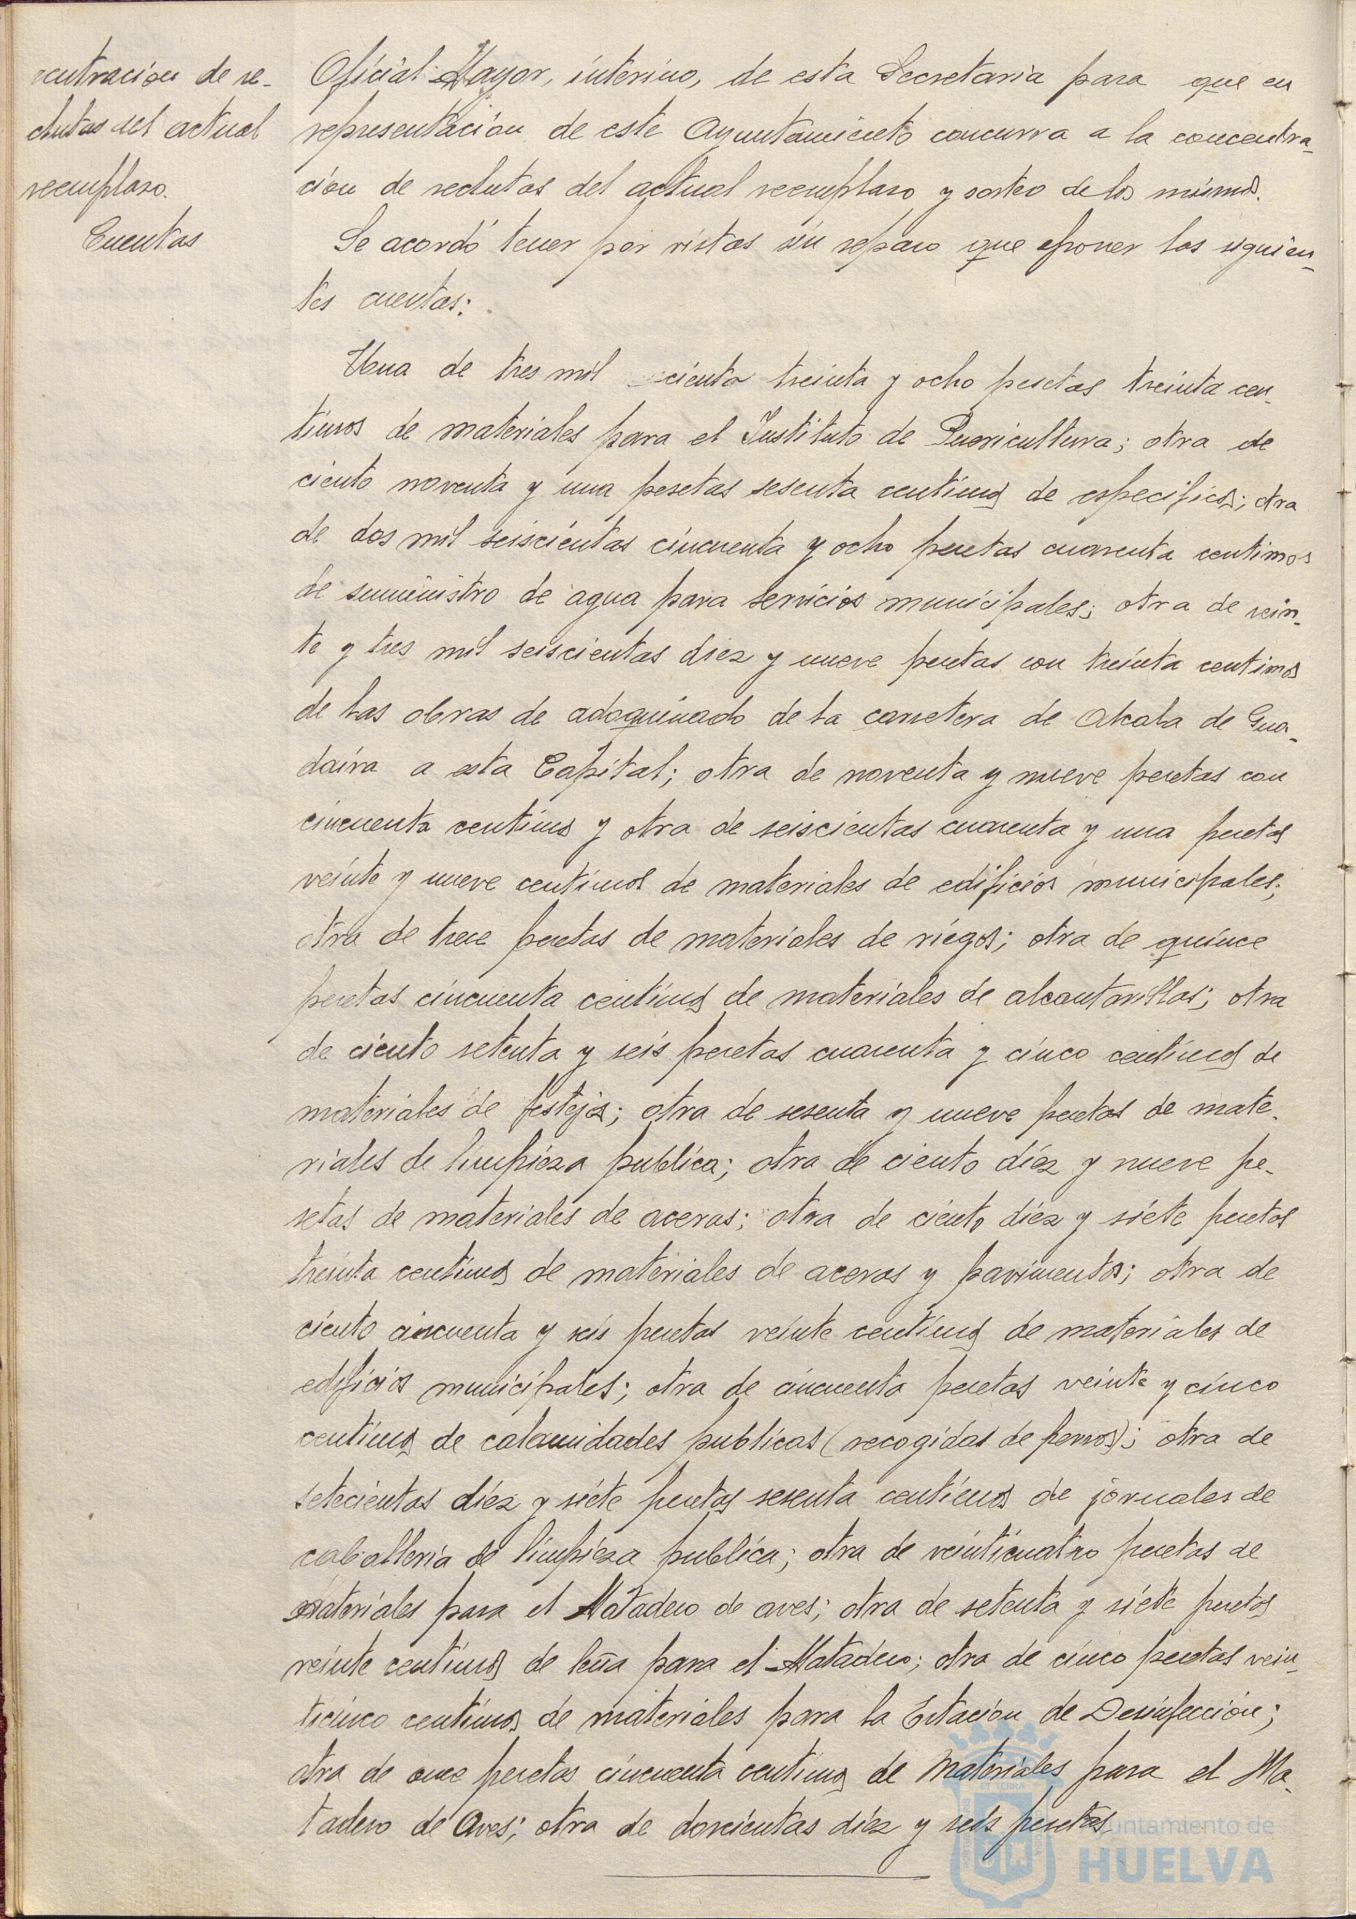 centracion de re-
clutas del actual
reemplazo.
Cuentas
Oficial Mayor, interino, de esta Secretaria para que en
representacion de este Ayuntamiento concurra a la concentra-
cion de reclutas del actual reemplazo y sorteo de los mismos.
Se acordó tener por vistas sin reparo que oponer las siguien-
tes cuentas:
Una de tres mil ciento treinta y ocho pesetas treinta cen-
timos de materiales para el Instituto de Puericultura; otra de
ciento noventa y una pesetas sesenta centimos de especificos; otra
de dos mil seiscientas cincuenta y ocho pesetas cuarenta centimos
de suministro de agua para servicios municipales; otra de vein-
te y tres mil seiscientas diez y nueve pesetas con treinta centimos
de las obras de adoquinado de la carretera de Alcala de Gua-
daira a esta Capital; otra de noventa y nueve pesetas con
cincuenta centimos y otra de seiscientas cuarenta y una pesetas
veinte y nueve centimos de materiales de edificios municipales;
otra de trece pesetas de materiales de riegos; otra de quince
pesetas cincuenta centimos de materiales de alcantarillas; otra
de ciento setenta y seis pesetas cuarenta y cinco centimos de
materiales de festejos; otra de sesenta y nueve pesetas de mate-
riales de limpieza publica; otra de ciento diez y nueve pe-
setas de materiales de aceras; otra de ciento diez y siete pesetas
treinta centimos de materiales de aceras y pavimentos; otra de
ciento cincuenta y seis pesetas veinte centimos de materiales de
edificios municipales; otra de cincuenta pesetas veinte y cinco
centimos de calamidades publicas (recogidas de perros); otra de
setecientas diez y siete pesetas sesenta centimos de jornales de
caballeria de limpieza publica; otra de veinticuatro pesetas de
materiales para el Matadero de aves; otra de setenta y siete pesetas
veinte centimos de leña para el Matadero; otra de cinco pesetas vein-
ticinco centimos de materiales para la Estación de Desinfeccion;
otra de once pesetas cincuenta centimos de materiales para el Ma-
tadero de Aves; otra de doscientas diez y seis pesetas
Ayuntamiento de
HUELVA